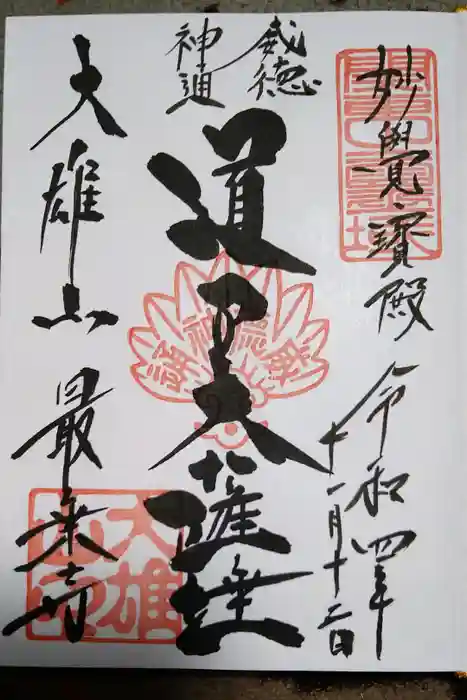 妙覺寶殿
令和四年
十一月十二日
威徳
神通
道了大薩埵
大雄山 最乗寺
大雄
山印